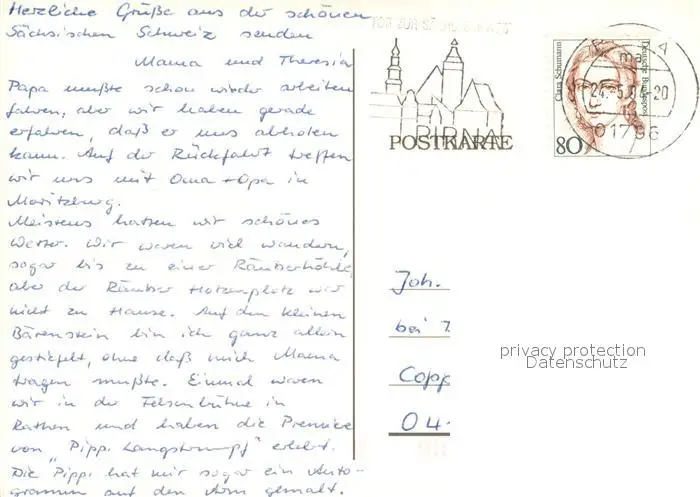 Herzliche Grüße aus der schönen
Sächsischen Schweiz senden
Mama und Theresia
Papa mußte schon wieder arbeiten
fahren, aber wir haben gerade
erfahren, daß er uns abholen
kann. Auf der Rückfahrt treffen
wir uns mit Oma + Opa in
Moritzburg.
Meistens hatten wir schönes
Wetter. Wir waren viel wandern,
sogar bis zu einer Räuberhöhle,
aber der Räuber Hotzenplotz war
nicht zu Hause. Auf den kleinen
Bärenstein bin ich ganz allein
gestiefelt, ohne daß mich Mama
tragen mußte. Einmal waren
wir in der Felsenbühne in
Rathen und haben die Premiere
von "Pippi Langstrumpf" erlebt.
Die Pippi hat mir sogar ein Auto-
gramm auf den Arm gemalt.
TOR ZUR SÄCHS. SCHWEIZ
PIRNA
POSTKARTE
Clara Schumann
Deutsche Bundespost
80
24.-5.94-20
01796
Joh.
bei
Copp
04
privacy protection
Datenschutz